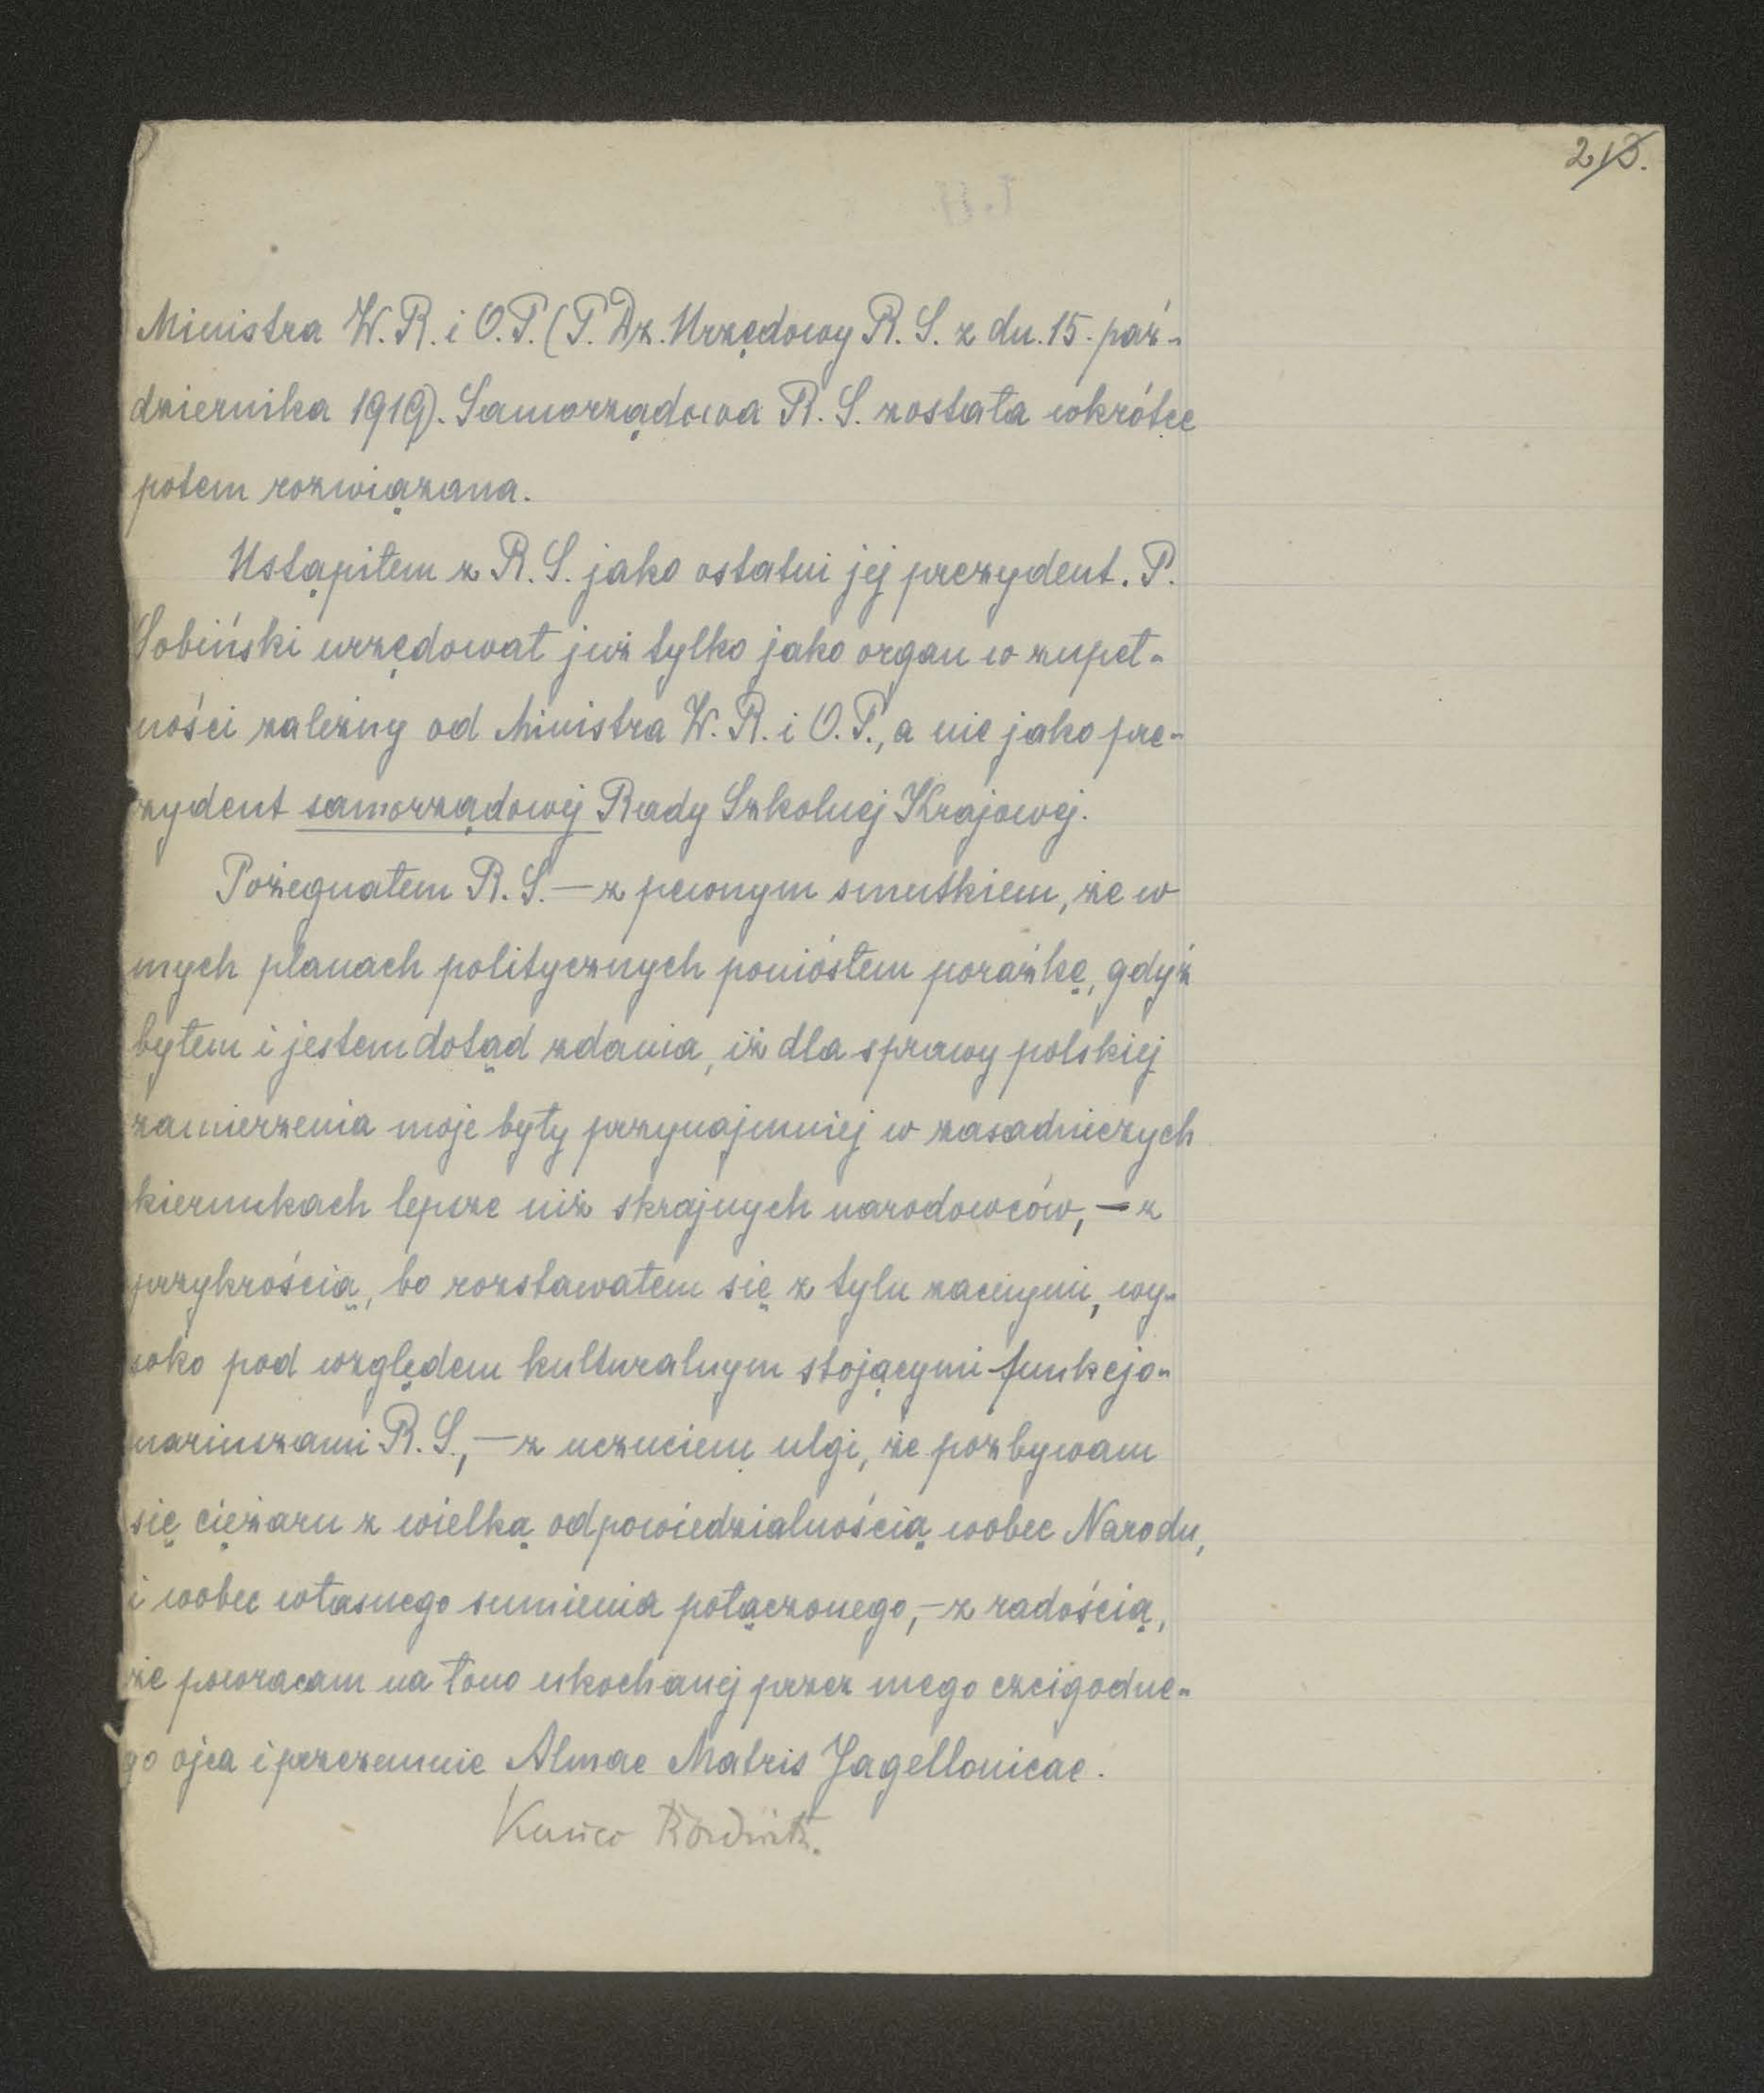 Ministra W. R. i O. P. (P. Dz. Urzędowy R. S. z dn. 15. paź-
dziernika 1919). Samorządowa R. S. została wkrótce
potem rozwiązana.
Ustąpiłem z R. S. jako ostatni jej prezydent. P.
Sobiński urzędował już tylko jako organ w zupeł-
ności zależny od Ministra W. R. i O. P., a nie jako pre-
zydent samorządowej Rady Szkolnej Krajowej.
Pożegnałem R. S. — z pewnym smutkiem, że w
mych planach politycznych poniosłem porażkę, gdyż
byłem i jestem dotąd zdania, iż dla sprawy polskiej
zamierzenia moje były przynajmniej w zasadniczych
kierunkach lepsze niż skrajnych narodowców, — z
przykrością, bo rozstawałem się z tylu zacnymi, wy-
soko pod względem kulturalnym stojącymi funkcjo-
nariuszami R. S., — z uczuciem ulgi, że pozbywam
się ciężaru z wielką odpowiedzialnością wobec Narodu,
i wobec własnego sumienia połączonego, — z radością,
że powracam na łono ukochanej przez mego czcigodne-
go ojca i przezemnie Almae Matris Jagellonicae.